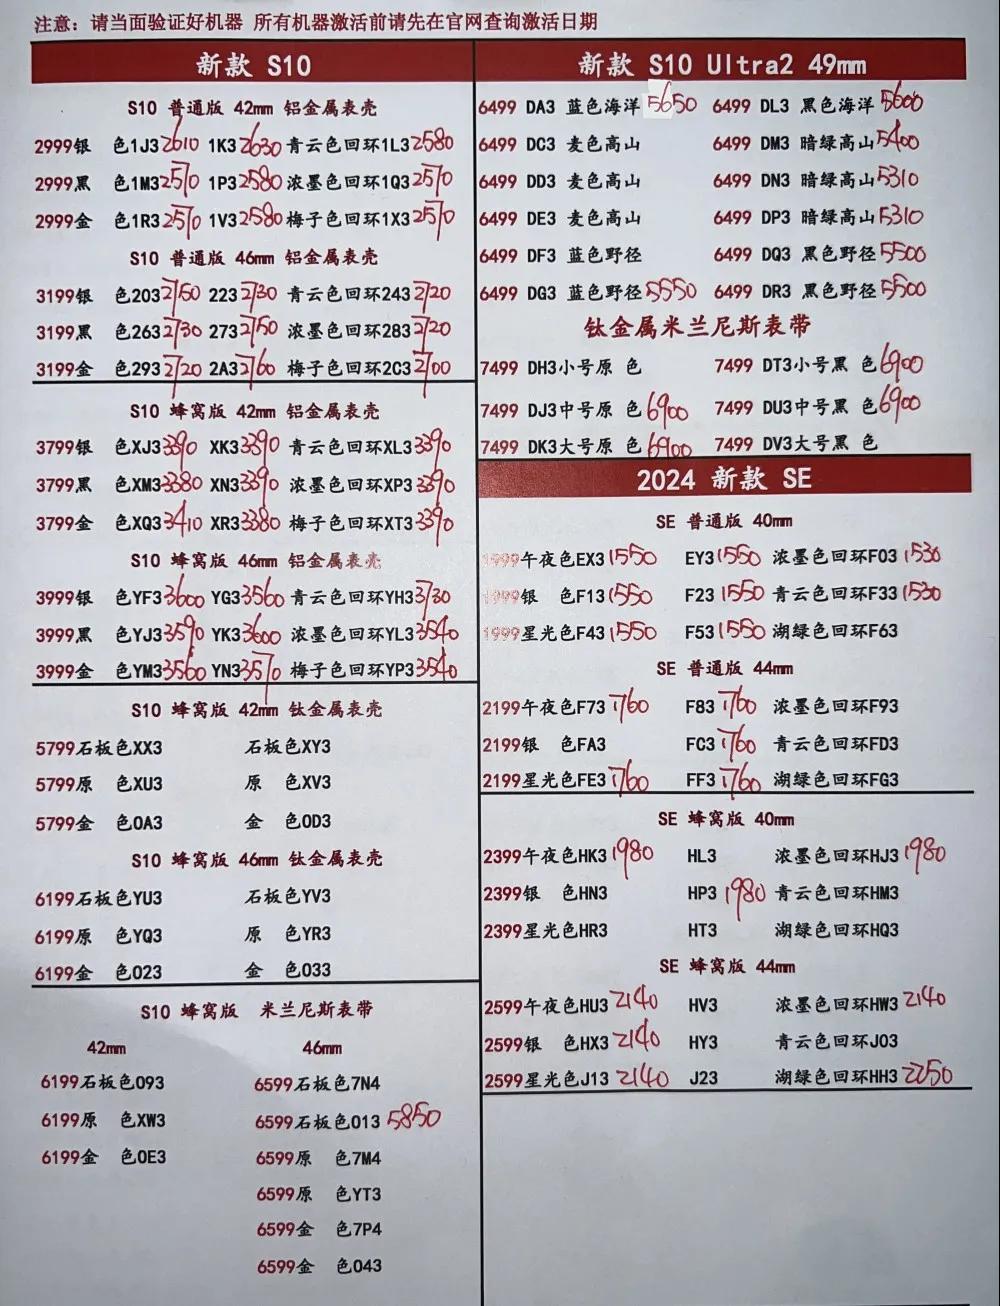 注意：请当面验证好机器 所有机器激活前请先在官网查询激活日期
新款 S10
S10 普通版 42mm 铝金属表壳
2999银 色1J3 2610 1K3 2630 青云色回环1L3 2580
2999黑 色1M3 2570 1P3 2580 浓墨色回环1Q3 2570
2999金 色1R3 2570 1V3 2580 梅子色回环1X3 2570
S10 普通版 46mm 铝金属表壳
3199银 色203 2750 223 2730 青云色回环243 2720
3199黑 色263 2730 273 2750 浓墨色回环283 2720
3199金 色293 2720 2A3 2760 梅子色回环2C3 2700
S10 蜂窝版 42mm 铝金属表壳
3799银 色XJ3 3390 XK3 3390 青云色回环XL3 3390
3799黑 色XM3 3380 XN3 3390 浓墨色回环XP3 3390
3799金 色XQ3 3410 XR3 3380 梅子色回环XT3 3390
S10 蜂窝版 46mm 铝金属表壳
3999银 色YF3 3600 YG3 3560 青云色回环YH3 3730
3999黑 色YJ3 3590 YK3 3600 浓墨色回环YL3 3540
3999金 色YM3 3560 YN3 3570 梅子色回环YP3 3540
S10 蜂窝版 42mm 钛金属表壳
5799石板色XX3 石板色XY3
5799原 色XU3 原 色XV3
5799金 色0A3 金 色0D3
S10 蜂窝版 46mm 钛金属表壳
6199石板色YU3 石板色YV3
6199原 色YQ3 原 色YR3
6199金 色023 金 色033
S10 蜂窝版 米兰尼斯表带
42mm 46mm
6199石板色093 6599石板色7N4
6199原 色XW3 6599石板色013 5850
6199金 色0E3 6599原 色7M4
6599原 色YT3
6599金 色7P4
6599金 色043
新款 S10 Ultra2 49mm
6499 DA3 蓝色海洋 5650 6499 DL3 黑色海洋 5600
6499 DC3 麦色高山 6499 DM3 暗绿高山 5400
6499 DD3 麦色高山 6499 DN3 暗绿高山 5310
6499 DE3 麦色高山 6499 DP3 暗绿高山 5310
6499 DF3 蓝色野径 6499 DQ3 黑色野径 5500
6499 DG3 蓝色野径 5550 6499 DR3 黑色野径 5500
钛金属米兰尼斯表带
7499 DH3小号原 色 7499 DT3小号黑 色 6900
7499 DJ3中号原 色 6900 7499 DU3中号黑 色 6900
7499 DK3大号原 色 6900 7499 DV3大号黑 色
2024 新款 SE
SE 普通版 40mm
1999午夜色EX3 1550 EY3 1550 浓墨色回环F03 1530
1999银 色F13 1550 F23 1550 青云色回环F33 1530
1999星光色F43 1550 F53 1550 湖绿色回环F63
SE 普通版 44mm
2199午夜色F73 1760 F83 1760 浓墨色回环F93
2199银 色FA3 FC3 1760 青云色回环FD3
2199星光色FE3 1760 FF3 1760 湖绿色回环FG3
SE 蜂窝版 40mm
2399午夜色HK3 1980 HL3 浓墨色回环HJ3 1980
2399银 色HN3 HP3 1980 青云色回环HM3
2399星光色HR3 HT3 湖绿色回环HQ3
SE 蜂窝版 44mm
2599午夜色HU3 2140 HV3 浓墨色回环HW3 2140
2599银 色HX3 2140 HY3 青云色回环J03
2599星光色J13 2140 J23 湖绿色回环HH3 2250